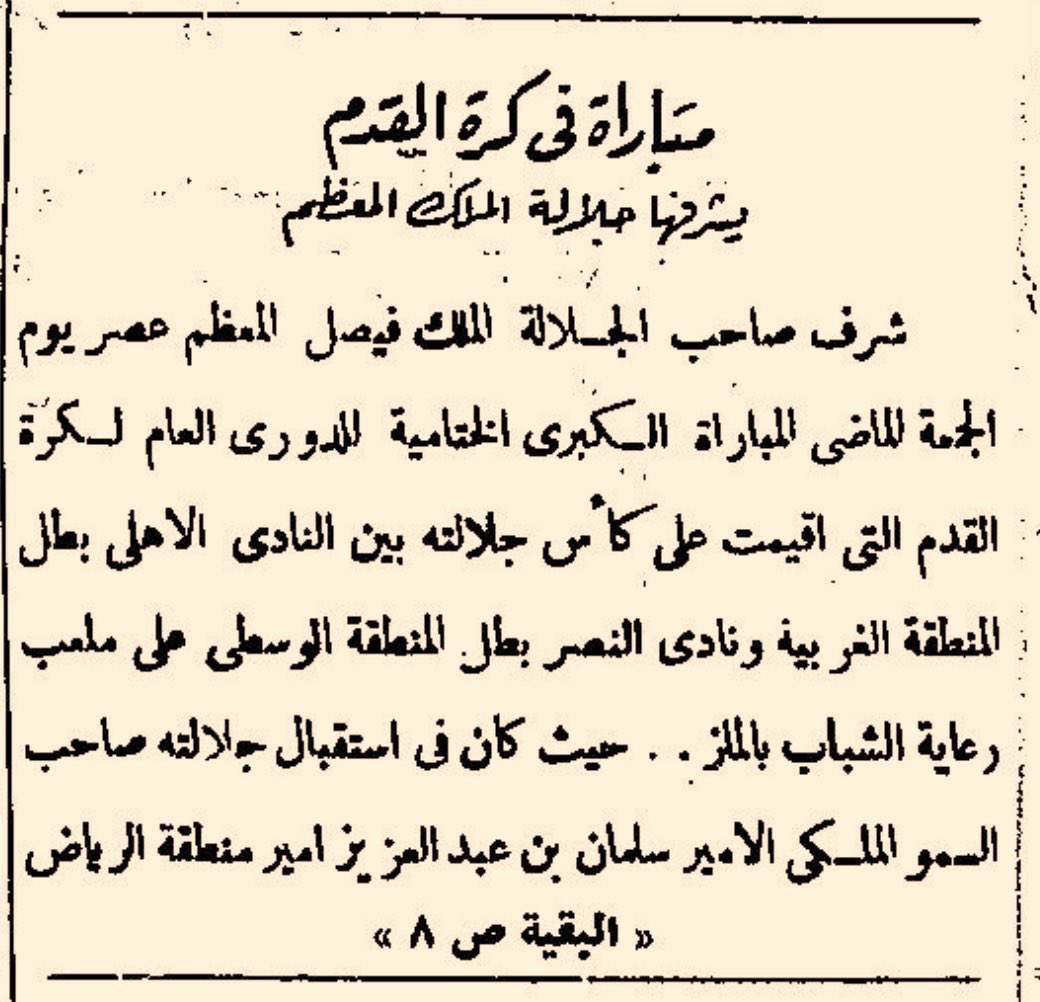 مباراة فى كرة القدم
يشرفها جلالة الملك المعظم
شرف صاحب الجــلالة الملك فيصل المعظم عصر يوم
الجمعة الماضى المباراة الــكبرى الختامية للدورى العام لــكرة
القدم التى اقيمت على كأس جلالته بين النادى الاهلى بطل
المنطقة الغربية ونادى النصر بطل المنطقة الوسطى على ملعب
رعاية الشباب بالملز . . حيث كان فى استقبال جلالته صاحب
الــسمو الملــكى الامير سلمان بن عبد العزيز امير منطقة الرياض
« البقية ص ٨ »